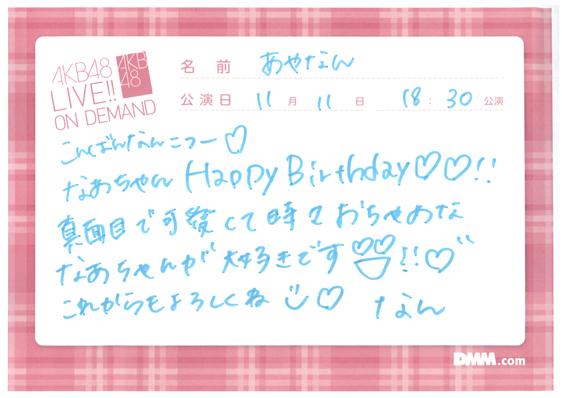 AKB48
LIVE!!
ON DEMAND
AKB
48
名前 あやなん
公演日 11月11日 18:30公演
こんばんなんこつー♡
なあちゃん Happy Birthday♡♡!!
真面目で可愛くて時々おちゃめな
なあちゃんが大好きです!!♡
これからもよろしくね♡ なん
DMM.com